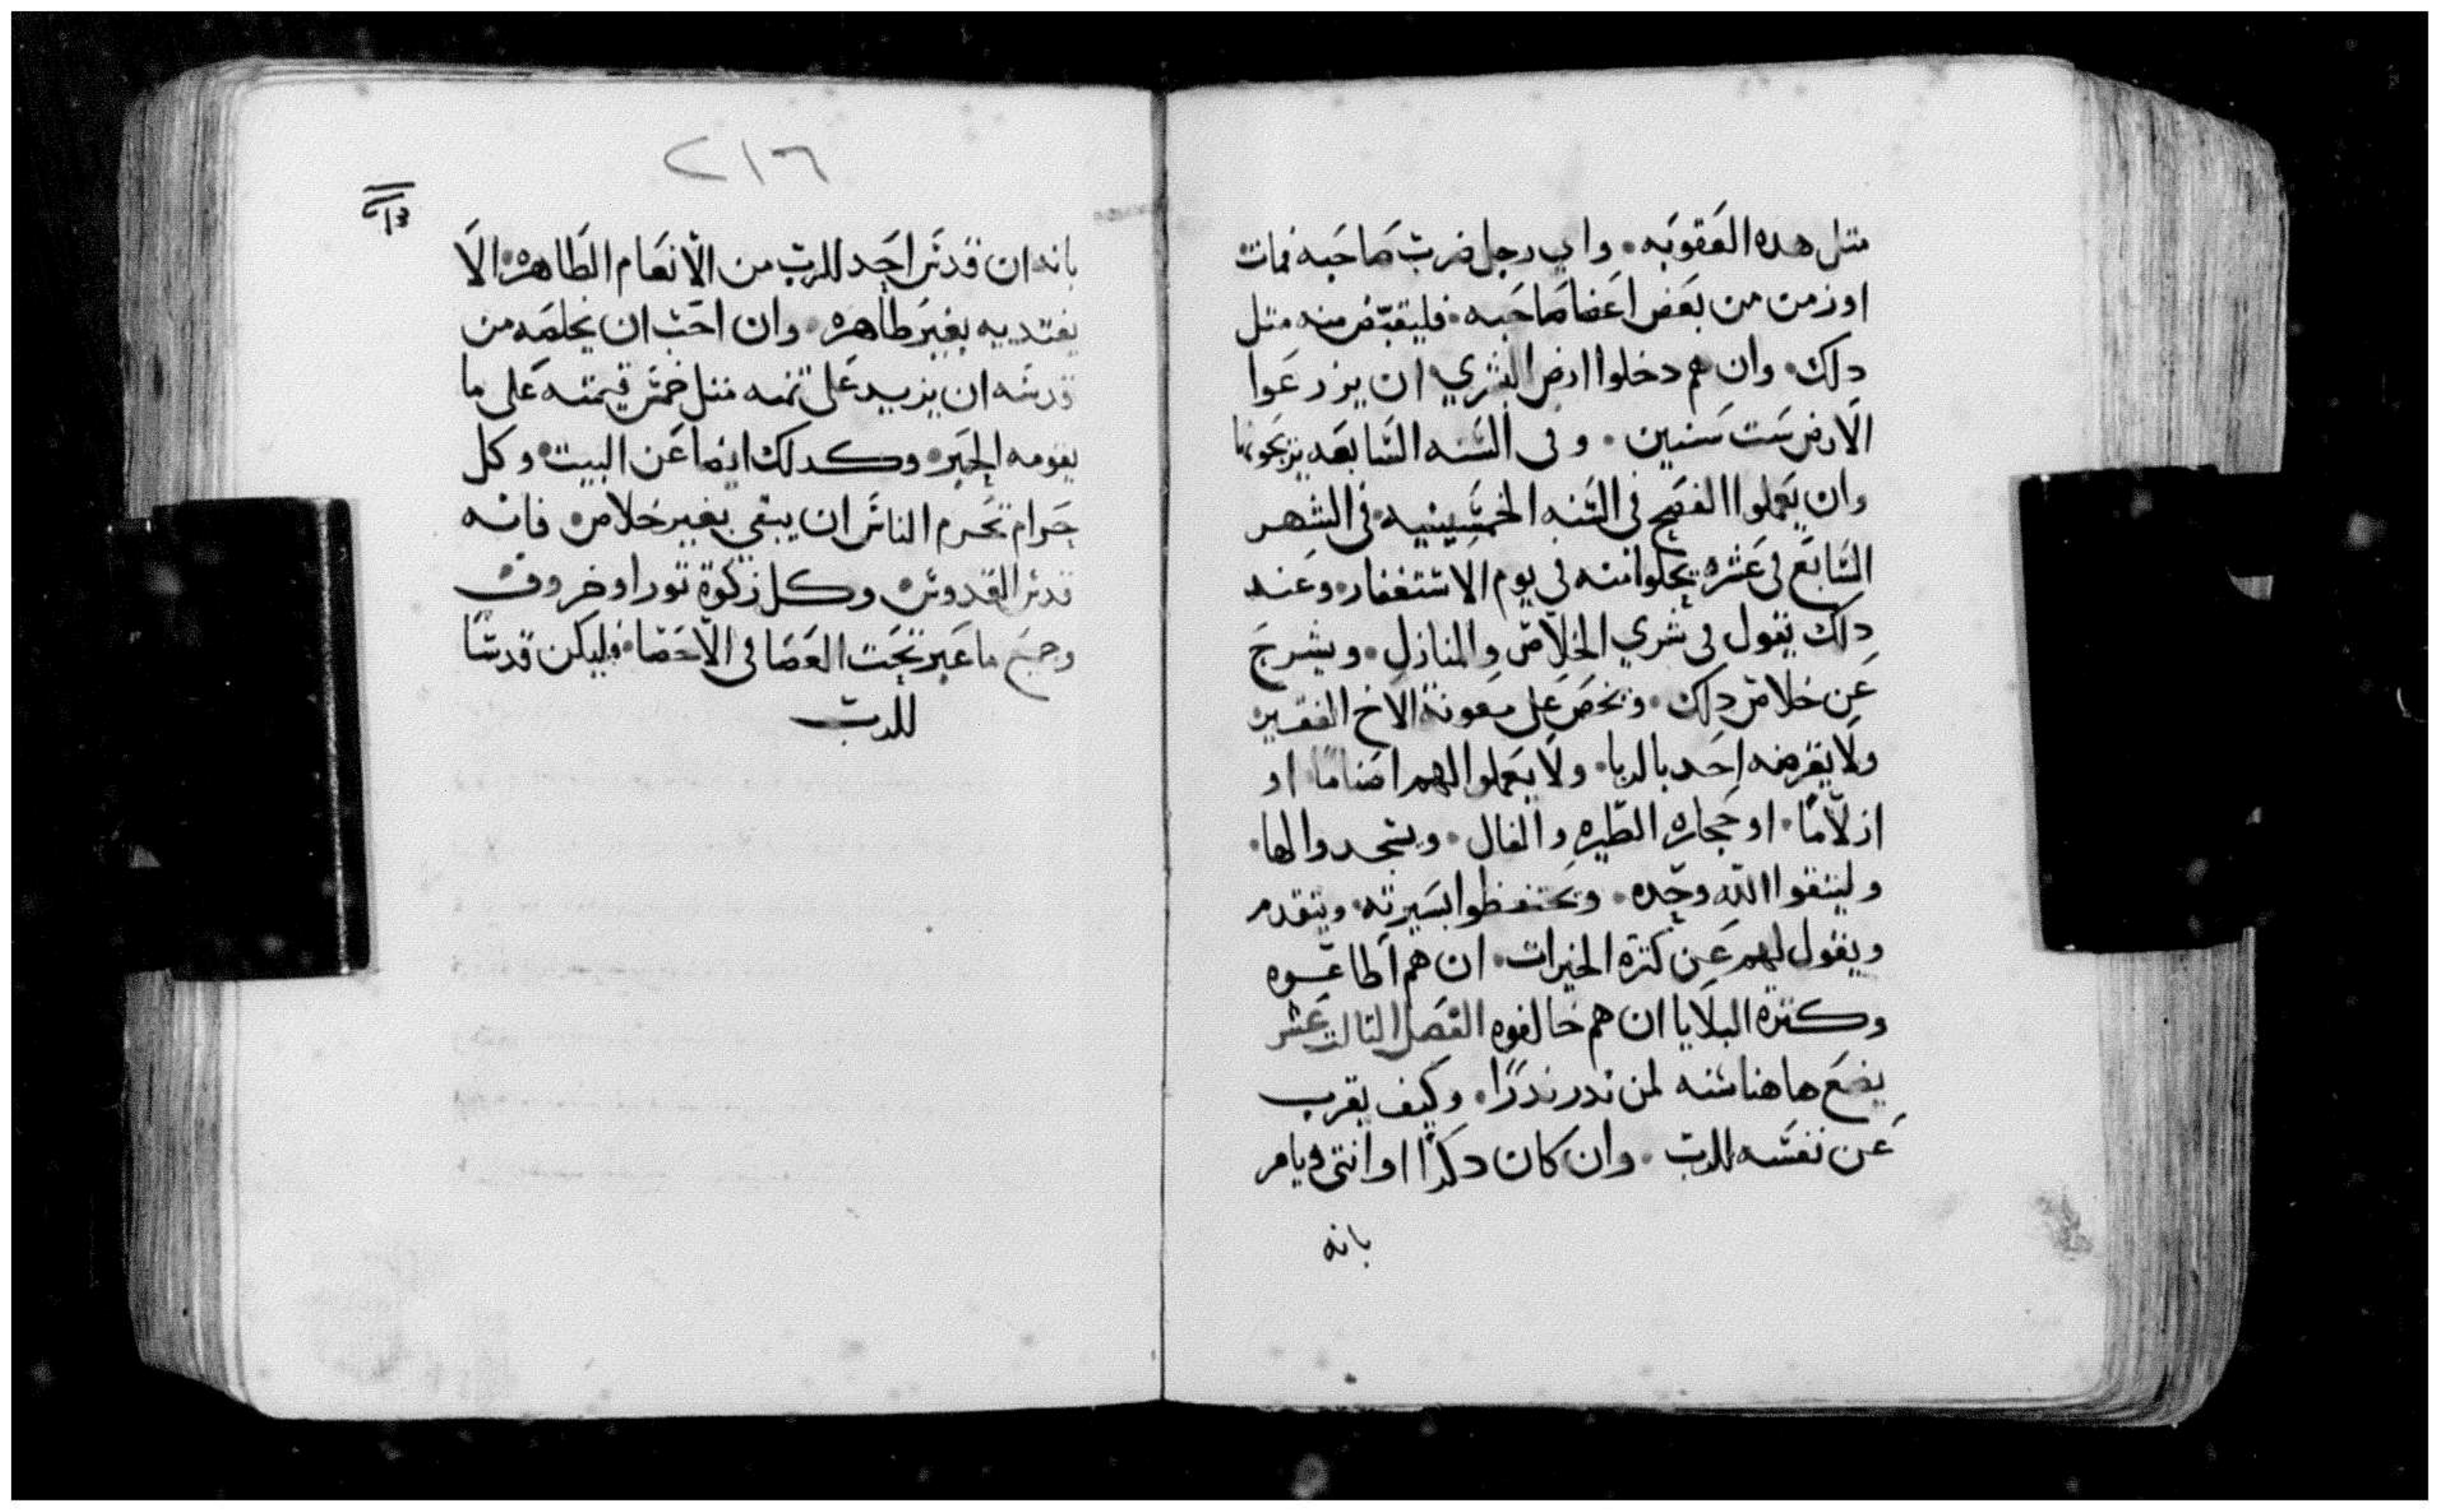 متل هده العقوبه. واي رجل ضرب صاحبه فمات
او زمن من بعض اعضا صاحبه. فليقتص منه متل
دلك. وان هم دخلوا ارض البشري ان يزرعوا
الارض ست سنين. وفى السنه السابعه يزيحونها
وان يعملوا الفصح فى السنه الخمسينيه. فى الشهر
السابع فى عشره يحلوا منه فى يوم الاستغفار. وعند
دلك يقول فى شري الخلاص والمنازل. ويشرح
عن خلاص دلك. ويحض على معونة الاخ الفقير.
ولا يقرضه احد بالربا. ولا يعملوا لهم اصناما. او
ازلاما. او حجاره الطيره والفال. ويسجدوا لها.
وليتقوا الله وحده. ويحتفظوا بسيرته. ويتقدم
ويقول لهم عن كتره الخيرات. ان هم اطاعوه
وكتره البلايا ان هم خالفوه الفصل التالت عشر
يضع هاهنا سنه لمن ندر ندرا. وكيف يقرب
عن نفسه للرب. وان كان دكرا او انتى ويامر
بانه
٢١٦
بانه ان قدس احد للرب من الانعام الطاهره. الا
يفتديه بغير طاهره. وان احب ان يخلصه من
قدسه ان يزيد على تمنه متل خمس قيمته على ما
يقومه الحبر. وكدلك ايضا عن البيت. وكل
حرام تحرم الناس ان يبقي بغير خلاص. فانه
قدس القدوس. وكل زكوة تورا وخروف
وجميع ما عبر تحت العصا فى الاحصا. فليكن قدسا
للرب